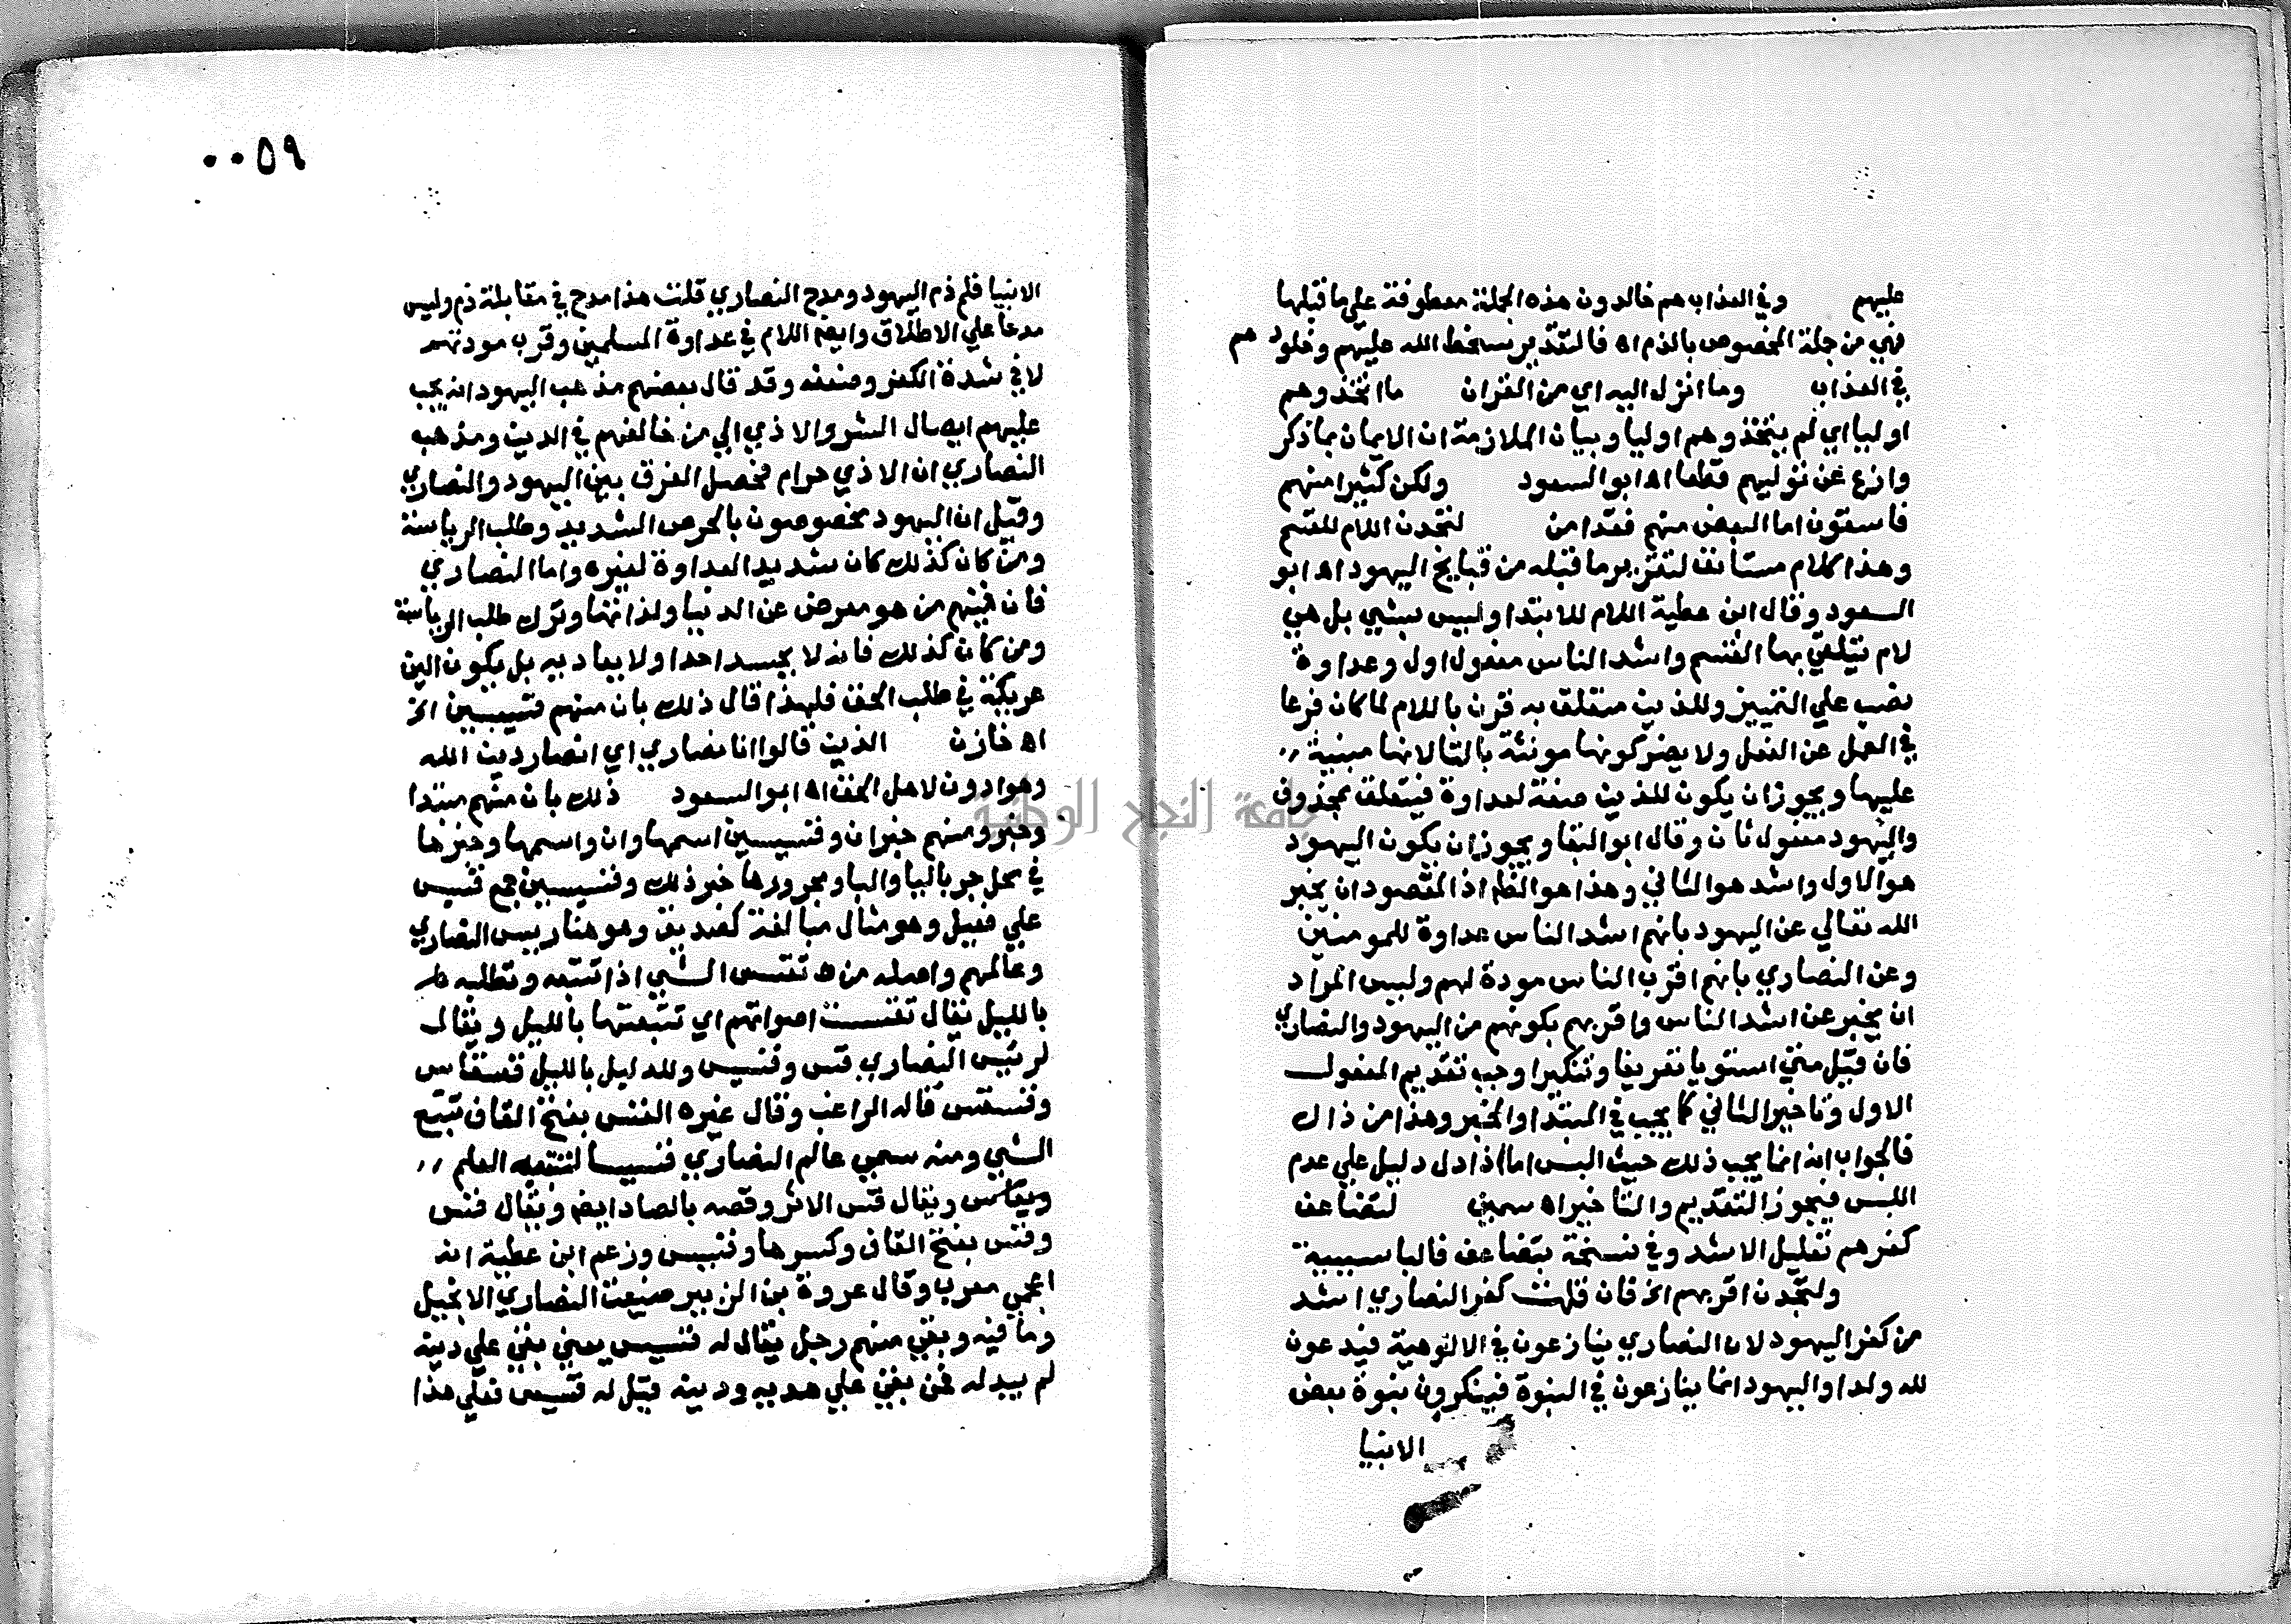 عليهم وفي العذاب هم خالدون هذه الجملة معطوفة علي ما قبلها
فهي من جملة المخصوص بالذم اه فالتقدير سخط الله عليهم وخلودهم
في العذاب وما انزل اليه اي من القران ما اتخذوهم
اوليا اي لم يتخذوهم اوليا وبيان الملازمة ان الايمان بما ذكر
وازع عن توليهم قطعا اه ابو السعود ولكن كثيرا منهم
فاسقون اما البعض منهم فقد امن لتجدن اللام للقسم
وهذا كلام مستانف لتقرير ما قبله من قبايح اليهود اه ابو
السعود وقال ابن عطية اللام للابتدا وليس بشي بل هي
لام يتلقي بها القسم واشد الناس مفعول اول وعداوة
نصب علي التمييز وللذين متعلق به قرن باللام لما كان فرعا
في العمل عن الفعل ولا يضر كونها مونثة بالتا لانها مبنية
عليها ويجوز ان يكون للذين صفة لعداوة فيتعلق بمحذوف
واليهود مفعول ثان وقال ابو البقا ويجوز ان يكون اليهود
هو الاول واشد هو الثاني وهذا هو الظ اذ المقصود ان يخبر
الله تعالي عن اليهود بانهم اشد الناس عداوة للمومنين
وعن النصاري بانهم اقرب الناس مودة لهم وليس المراد
ان يخبر عن اشد الناس واقربهم بكونهم من اليهود والنصاري
فان قيل متي استويا تعريفا وتنكيرا وجب تقديم المفعول
الاول وتاخير الثاني كما يجب في المبتدا والخبر وهذا من ذاك
فالجواب انه انما يجب ذلك حيث البس اما اذا دل دليل علي عدم
اللبس فيجوز التقديم والتاخير اه سمين لتضاعف
كفرهم تعليل الاشد وفي نسخة بتضاعف فالبا سببية
ولتجدن اقربهم الخ فان قلت كفر النصاري اشد
من كفر اليهود لان النصاري ينازعون في الالوهية فيدعون
لله ولدا واليهود انما ينازعون في النبوة فينكرون نبوة بعض
الانبيا
٠٠٥٩
الانبيا فلم ذم اليهود ومدح النصاري قلت هذا مدح في مقابلة ذم وليس
مدحا علي الاطلاق وايضا اللام في عداوة المسلمين وقرب مودتهم
لا في شدة الكفر وضعفه وقد قال بعضهم مذهب اليهود انه يجب
عليهم ايصال الشر والاذي الي من خالفهم في الدين ومذهب
النصاري ان الاذي حرام فحصل الفرق بين اليهود والنصاري
وقيل ان اليهود مخصوصون بالحرص الشديد وطلب الرياسة
ومن كان كذلك كان شديد العداوة لغيره واما النصاري
فان فيهم من هو معرض عن الدنيا ولذاتها وترك طلب الرياسة
ومن كان كذلك فانه لا يحسد احدا ولا يعاديه بل يكون الين
عريكة في طلب الحق فلهذا قال ذلك بان منهم قسيسين الخ
اه خازن الذين قالوا انا نصاري اي انصار دين الله
وهوادون لاهل الحق اه ابو السعود ذلك بان منهم مبتدا
وخبر ومنهم خبر ان وقسيسين اسمها وان واسمها وخبرها
في محل جر بالبا والبا ومجرورها خبر ذلك وقسيسين جمع قسيس
علي فعيل وهو مثال مبالغة كصديق وهو هنا رييس النصاري
وعالمهم واصله من تقسس الشي اذا تتبعه وتطلبه
بالليل يقال تقسست اصواتهم اي تتبعتها بالليل ويقال
لرئيس النصاري قس وقسيس وللدليل بالليل قسقاس
وقسقس قاله الراغب وقال غيره القس بفتح القاف تتبع
الشي ومنه سمي عالم النصاري قسيسا لتتبعه العلم
ويقاس ويقال قس الاثر وقصه بالصاد ايضا ويقال قس
وقس بفتح القاف وكسرها وقسيس وزعم ابن عطية انه
اعجمي معرب وقال عروة بن الزبير ضيعت النصاري الانجيل
وما فيه وبقي منهم رجل يقال له قسيس يعني بقي علي دينه
لم يبدله فمن بقي علي هديه ودينه قيل له قسيس فعلي هذا
جامعة النجاح الوطنية